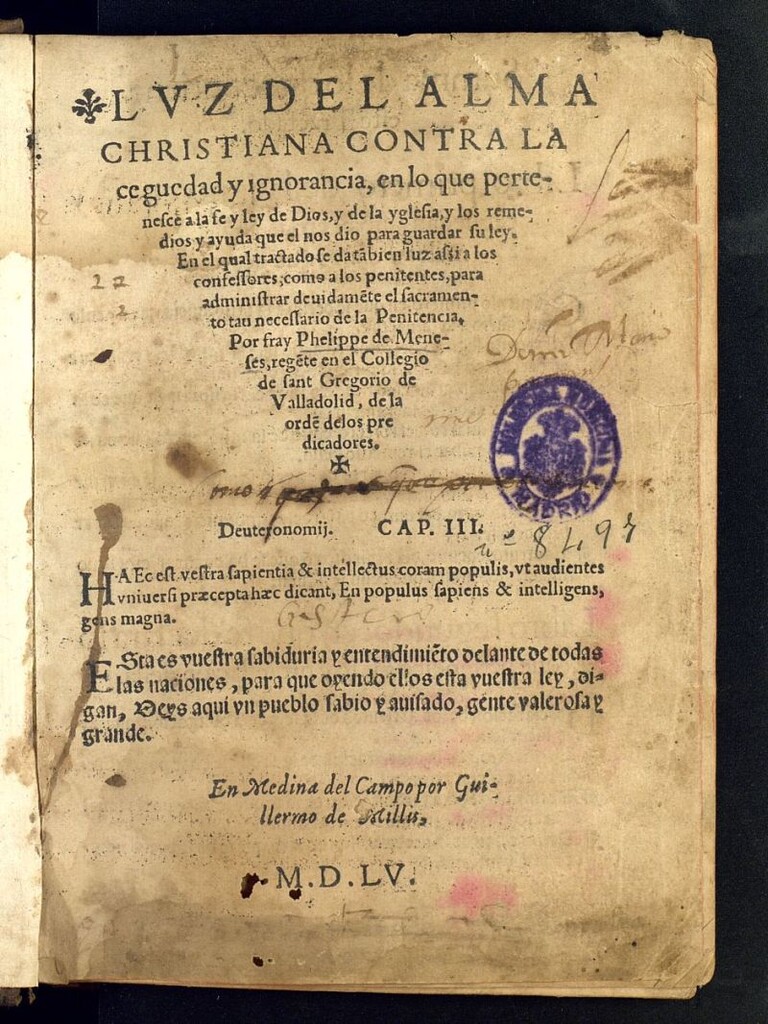 LVZ DEL ALMA
CHRISTIANA CONTRA LA
ceguedad y ignorancia, en lo que perte-
nesce a la fe y ley de Dios, y de la yglesia, y los reme-
dios y ayuda que el nos dio para guardar su ley.
En el qual tractado se da tãbien luz assi a los
confessores, como a los penitentes, para
administrar deuidamẽte el sacramen-
to tau necessario de la Penitencia.
Por fray Phelippe de Mene-
ses, regẽte en el Collegio
de sant Gregorio de
Valladolid, de la
ordẽ delos pre
dicadores.
✠
MADRID
Deuteronomij. CAP. III.
nº 8497
HAEc est vestra sapientia & intellectus coram populis, vt audientes
vniuersi præcepta hæc dicant, En populus sapiens & intelligens,
gens magna.
ESta es vuestra sabiduria y entendimiẽto delante de todas
las naciones, para que oyendo ellos esta vuestra ley, di-
gan, Veys aqui vn pueblo sabio y auisado, gente valerosa y
grande.
En Medina del Campo por Gui-
llermo de Millis,
M.D.LV.